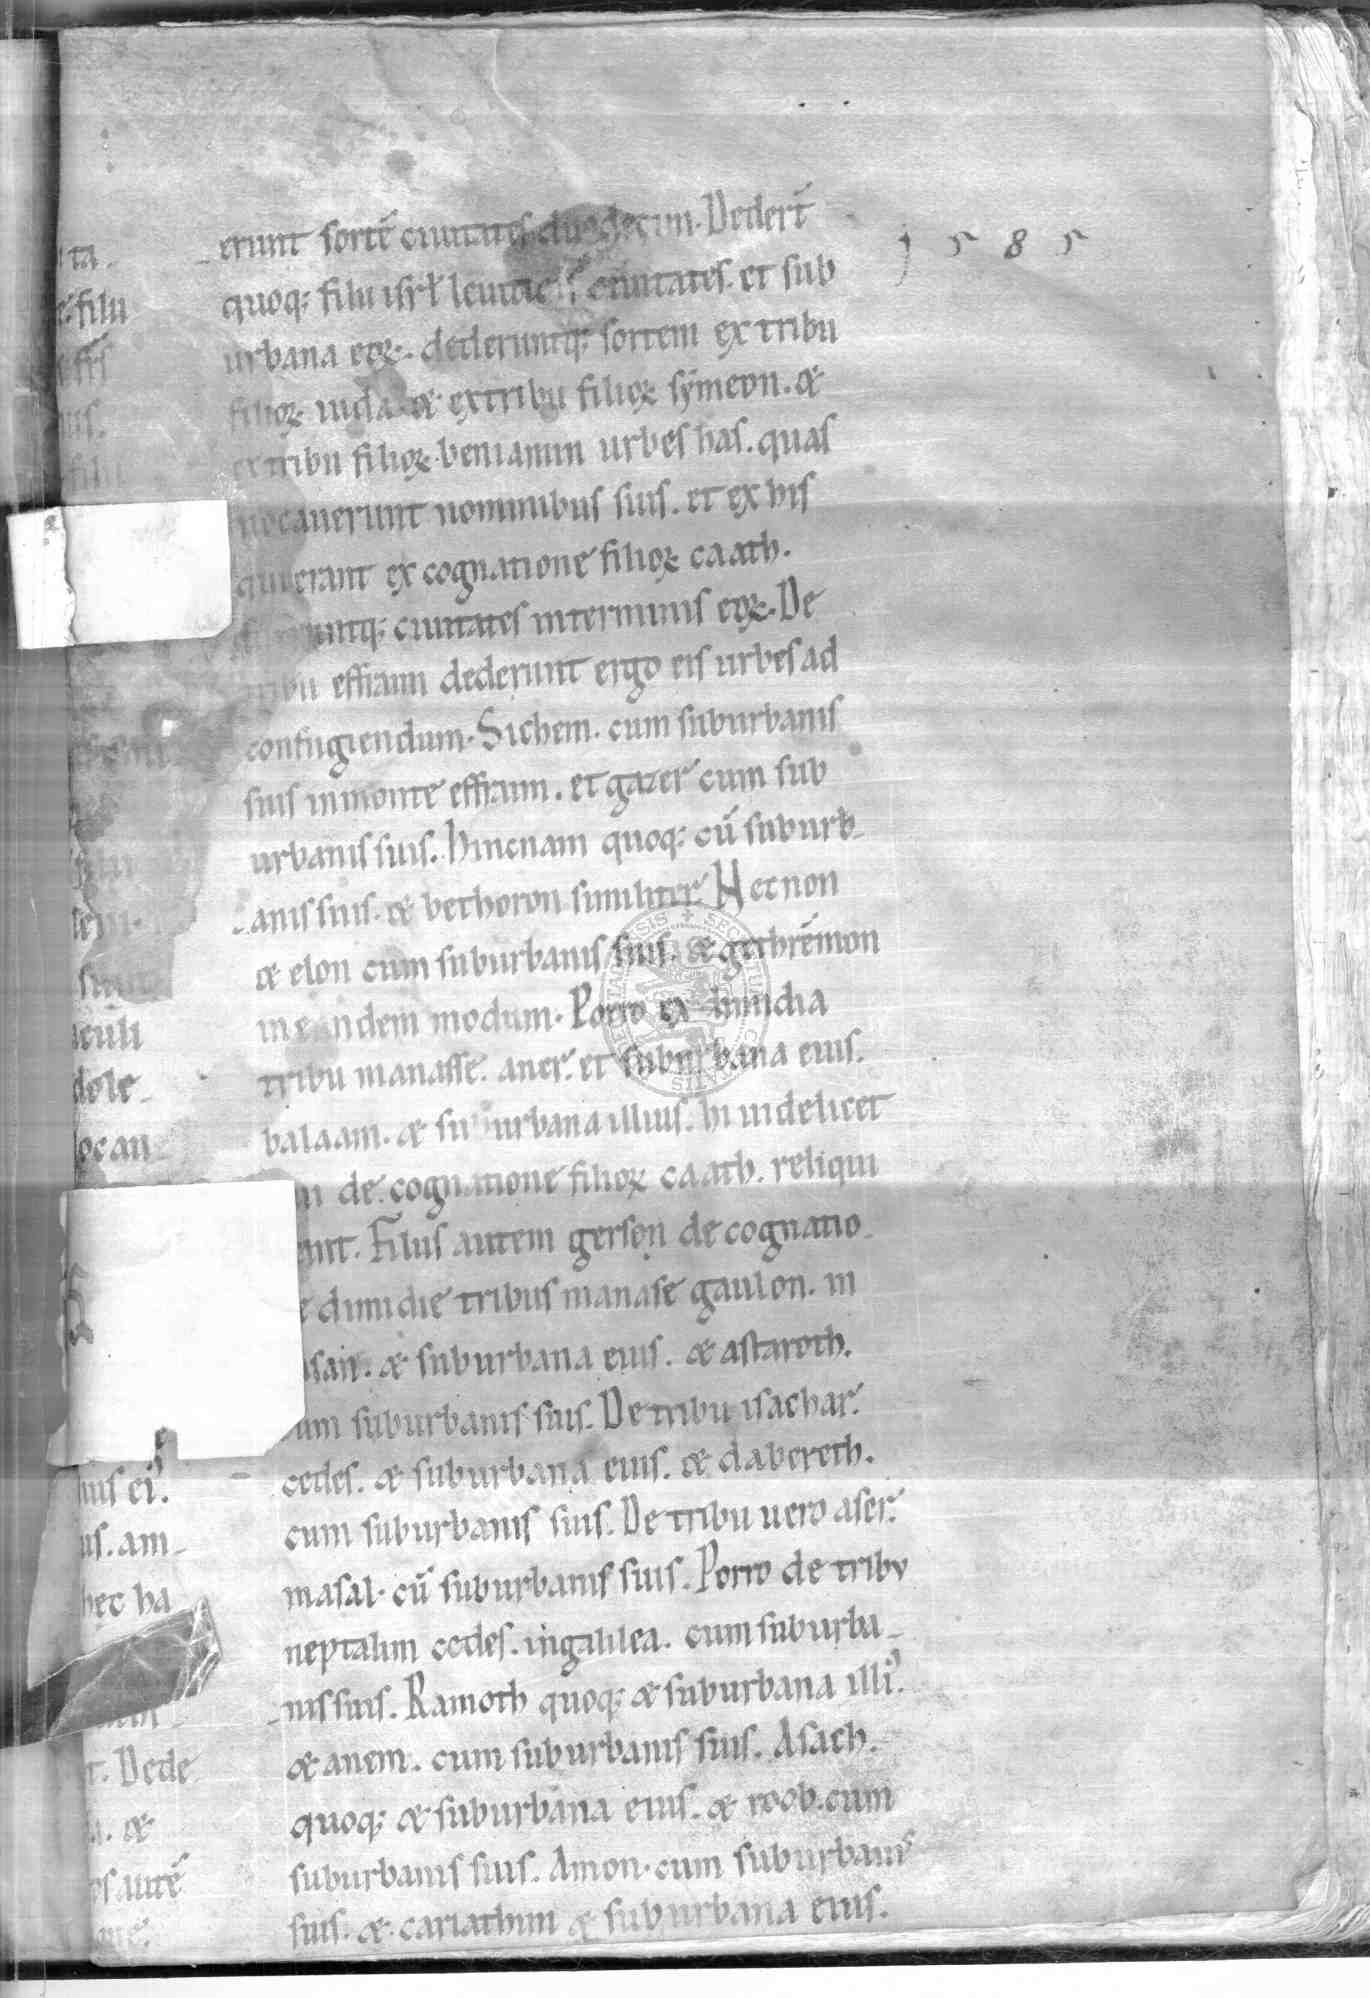 ta-
filii
erunt sortē ciuitates duodecim. Dederī
1585
quoq; filii isrl leuitis ciuitates. et sub
urbana eoꝝ. dederuntq; sortem ex tribu
filioꝝ iuda. & extribu filioꝝ symeon. &
ex tribu filioꝝ beniamin urbes has. quas
uocauerunt nominibus suis. et ex his
qui erant ex cognatione filioꝝ caath.
ciuitates interminis eoꝝ. De
tribu effraim dederunt ergo eis urbes ad
confugiendum. Sichem. cum suburbanis
suis inmonte effraim. et gazer cum sub
urbanis suis. hmcnam quoq; cū suburb-
anis suis. & bethoron similiter. Necnon
& elon cum suburbanis suis. & gethremon
in eundem modum. Porro ex dimidia
tribu manasse. aner. et suburbana eius.
balaam. & suburbana illius. hi uidelicet
de cognatione filioꝝ caath. reliqui
Filiis autem gerson de cognatio-
dimidie tribus manase gaulon. in
& suburbana eius. & astaroth.
suburbanis suis. De tribu isachar.
cedes. & suburbana eius. & dabereth.
cum suburbanis suis. De tribu uero aser.
masal. cū suburbanis suis. Porro de tribu
neptalim cedes. ingalilea. cum suburba-
nis suis. Ramoth quoq; & suburbana illi᾽.
& anem. cum suburbanis suis. Asach.
quoq; & suburbana eius. & roob. cum
suburbanis suis. Amon. cum suburbanis
suis. & cariathim & suburbana eius.
dele-
ocan-
ei᾽.
us. am-
hec ha
Dede
&
autē